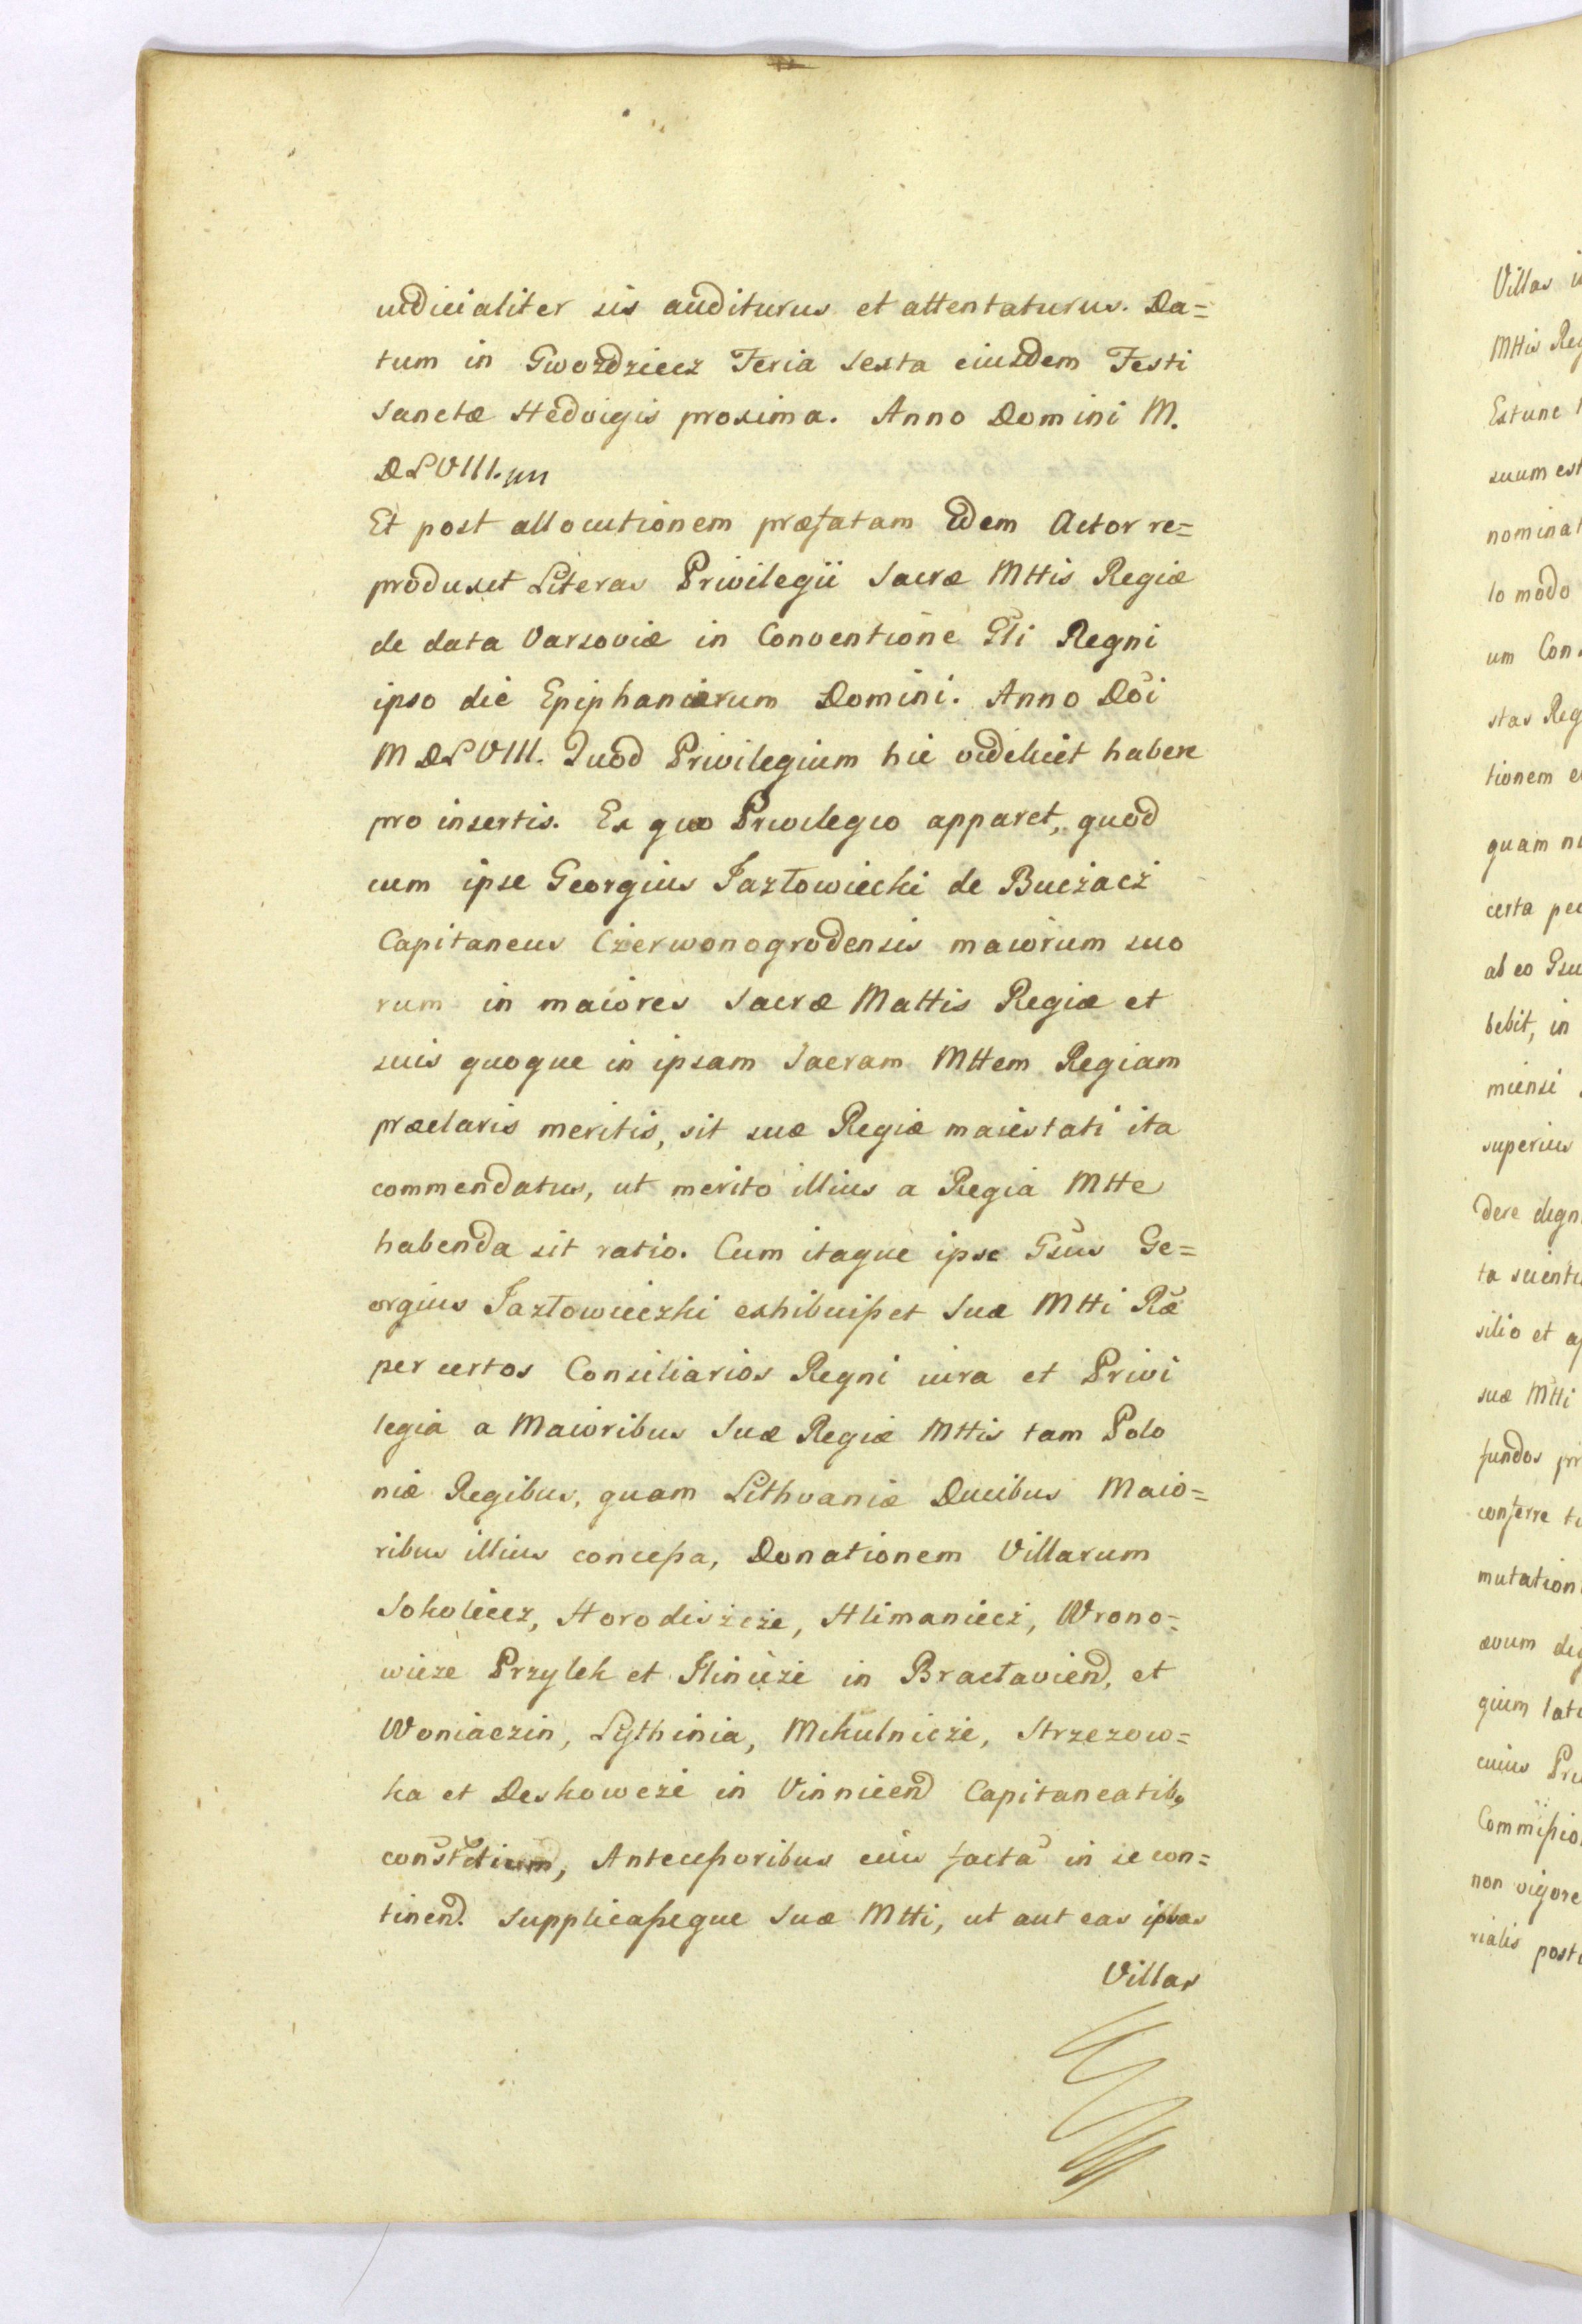 iudicialiter sis auditurus et attentaturus. Da=
tum in Gwozdziecz Feria sexta eiusdem Festi
Sanctæ Hedvigis proxima. Anno Domini M.
DLVIII.
Et post allocutionem præfatam Idem Actor re=
produxit Literas Privilegii Sacræ Mttis Regiæ
de data Varsoviæ in Conventione Gli Regni
ipso die Epiphaniarum Domini. Anno Dñi
MDLVIII. Quod Privilegium hic videlicet habere
pro insertis. Ex quo Privilegio apparet, quod
cum ipse Georgius Jazłowiecki de Buczacz
Capitaneus Czerwonogrodensis maiorum suo
rum in maiores Sacræ Mattis Regiæ et
suis quoque in ipsam Sacram Mttem Regiam
præclaris meritis, sit suæ Regiæ maiestati ita
commendatus, ut merito illius a Regia Mtte
habenda sit ratio. Cum itaque ipse Gsus Ge=
orgius Jazłowieczki exhibuisset Suæ Mtti Ræ
per certos Consiliarios Regni iura et Privi
legia a Maioribus Suæ Regiæ Mttis tam Polo
niæ Regibus, quam Lithvaniæ Ducibus Maio=
ribus illius concessa, Donationem Villarum
Sokoliecz, Horodiszcze, Hlimaniecz, Wrono=
wicze Przylek et Ilinicze in Bractaviend, et
Woniaczin, Lythinia, Mikulnicze, Strzezow=
ka et Deskowcze in Vinnicend Capitaneatib9
Antecessoribus eius facta in se con=
tinend. Supplicasseque Suæ Mtti, ut aut eas ipsas
Villas
Villas
Mttis Reg
Extunc
suum est
nominat
lo modo
um Con
stas Reg
tionem
quam
certa pec
ab eo Gsu
bebit, in
miensi
superius
dere dign
ta scient
silio et
suæ Mtti
fundos
conferre
mutation
ævum
gium lat
cuius
Commissio
non vigore
rialis post